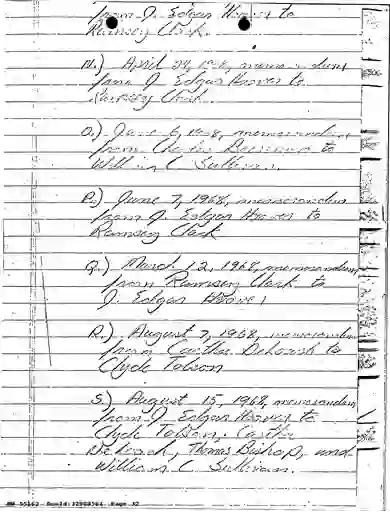 from J. Edgar Hoover to
Ramsey Clark.
N.) April 24, 1968, memorandum
from J. Edgar Hoover to
Ramsey Clark.
O.) June 6, 1968, memorandum
from Charles to
William C. Sullivan.
P.) June 7, 1968, memorandum
from J. Edgar Hoover to
Ramsey Clark
Q.) March 12, 1968, memorandum
from Ramsey Clark to
J. Edgar Hoover
R.) August 7, 1968, memorandum
from Cartha DeLoach to
Clyde Tolson
S.) August 15, 1968, memorandum
from J. Edgar Hoover to
Clyde Tolson, Cartha
DeLoach, Thomas Bishop, and
William C. Sullivan.
DocId: Page 32